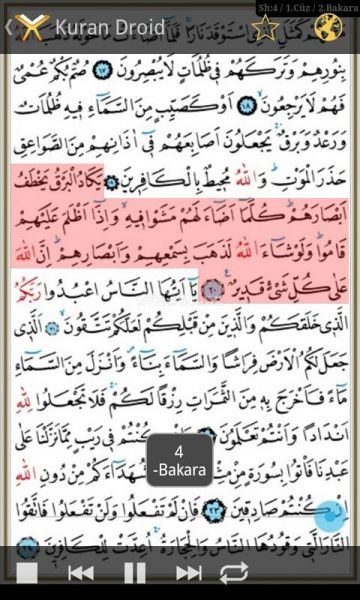 Sh:4 / 1.Cüz / 2.Bakara
Kuran Droid
بِنُورِهِمْ وَتَرَكَهُمْ فِي ظُلُمَاتٍ لَا يُبْصِرُونَ ﴿١٧﴾ صُمٌّ بُكْمٌ عُمْيٌ
فَهُمْ لَا يَرْجِعُونَ ﴿١٨﴾ أَوْ كَصَيِّبٍ مِنَ السَّمَاءِ فِيهِ ظُلُمَاتٌ
وَرَعْدٌ وَبَرْقٌ يَجْعَلُونَ أَصَابِعَهُمْ فِي آذَانِهِمْ مِنَ الصَّوَاعِقِ
حَذَرَ الْمَوْتِ وَاللهُ مُحِيطٌ بِالْكَافِرِينَ ﴿١٩﴾ يَكَادُ الْبَرْقُ يَخْطَفُ
أَبْصَارَهُمْ كُلَّمَا أَضَاءَ لَهُمْ مَشَوْا فِيهِ وَإِذَا أَظْلَمَ عَلَيْهِمْ
قَامُوا وَلَوْ شَاءَ اللهُ لَذَهَبَ بِسَمْعِهِمْ وَأَبْصَارِهِمْ إِنَّ اللهَ
عَلَى كُلِّ شَيْءٍ قَدِيرٌ ﴿٢٠﴾ يَا أَيُّهَا النَّاسُ اعْبُدُوا رَبَّكُمُ
الَّذِي خَلَقَكُمْ وَالَّذِينَ مِنْ قَبْلِكُمْ لَعَلَّكُمْ تَتَّقُونَ ﴿٢١﴾ الَّذِي
جَعَلَ لَكُمُ الْأَرْضَ فِرَاشًا وَالسَّمَاءَ بِنَاءً وَأَنْزَلَ مِنَ السَّمَاءِ
مَاءً فَأَخْرَجَ بِهِ مِنَ الثَّمَرَاتِ رِزْقًا لَكُمْ فَلَا تَجْعَلُوا لِلهِ
أَنْدَادًا وَأَنْتُمْ تَعْلَمُونَ كُنْتُمْ فِي رَيْبٍ مِمَّا نَزَّلْنَا عَلَى
عَبْدِنَا فَأْتُوا بِسُورَةٍ مِنْ شُهَدَاءَكُمْ مِنْ دُونِ اللهِ
إِنْ كُنْتُمْ صَادِقِينَ ﴿٢٣﴾ فَإِنْ لَمْ تَفْعَلُوا وَلَنْ تَفْعَلُوا فَاتَّقُوا
النَّارَ الَّتِي وَقُودُهَا النَّاسُ وَالْحِجَارَةُ أُعِدَّتْ لِلْكَافِرِينَ
4
-Bakara